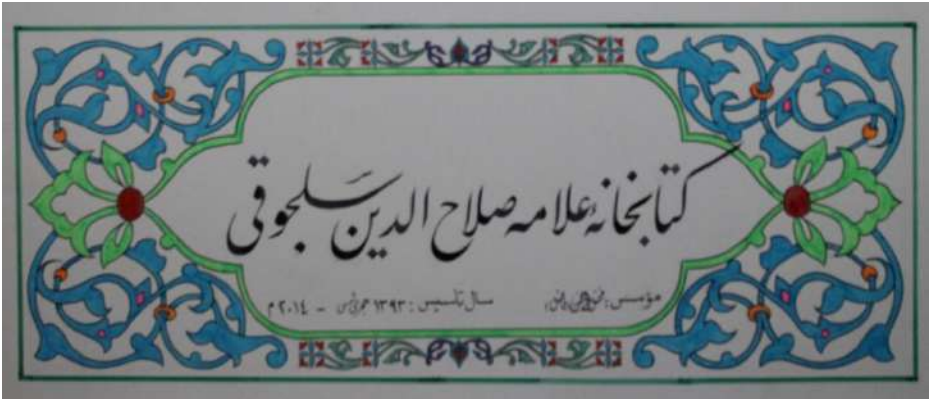 کتابخانهٔ علامه صلاح الدین سلجوقی
مؤسس: سال تأسیس: ۱۳۹۳ هجری ش - ۲۰۱۴ م